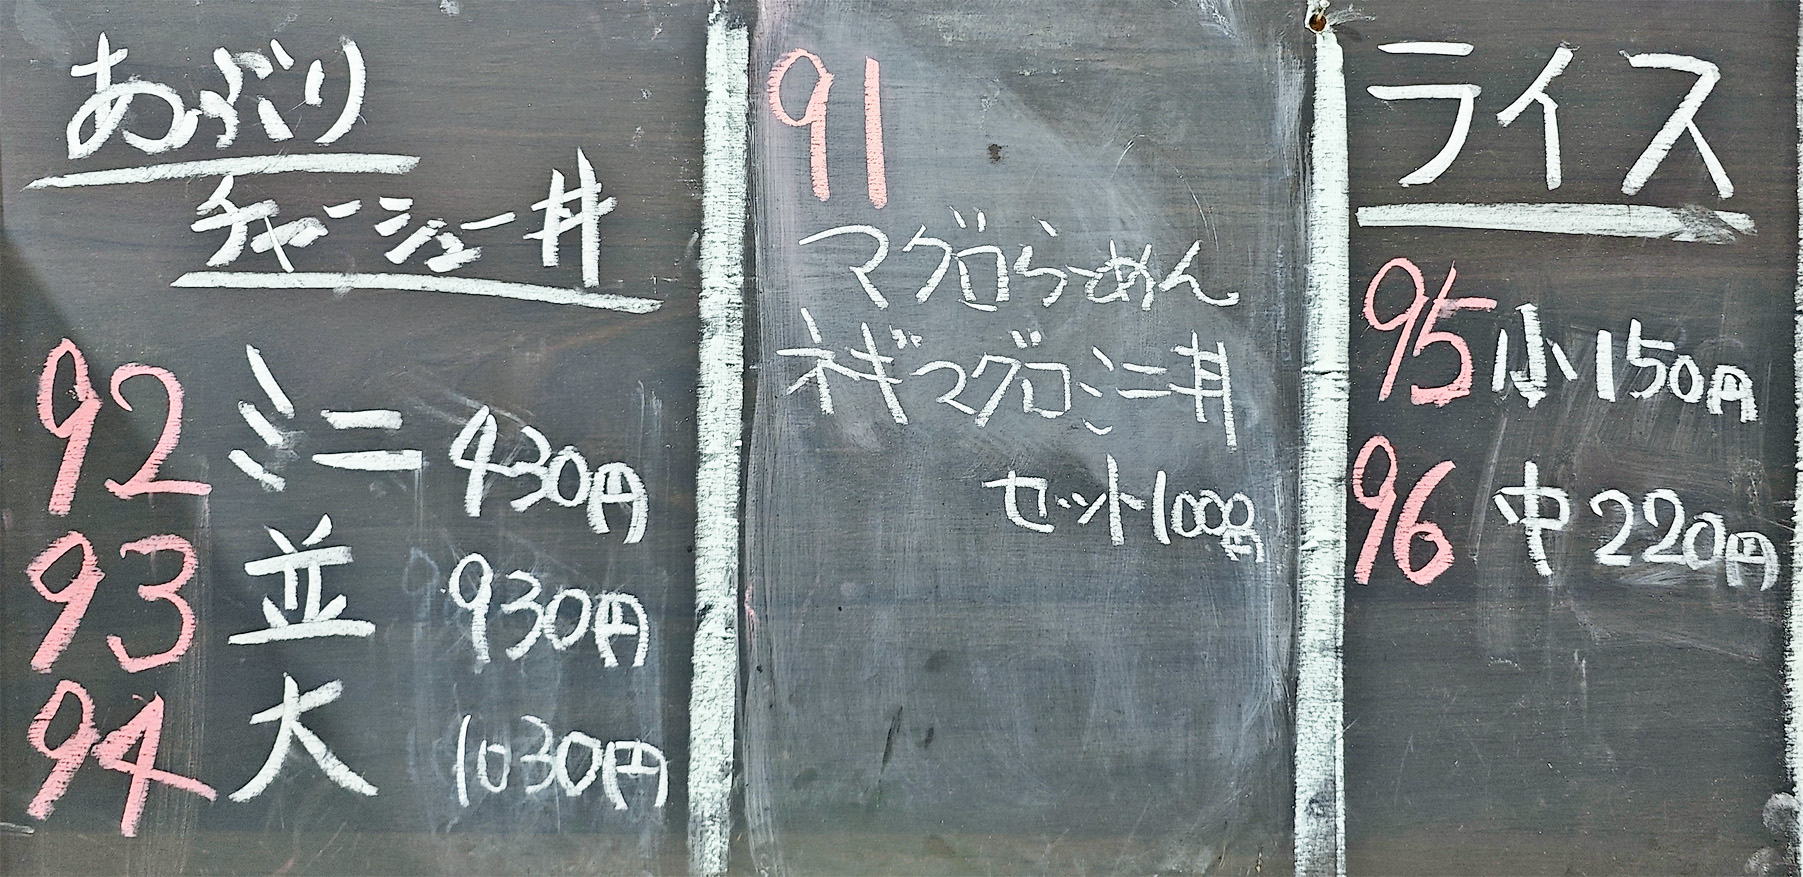 あぶり
チャーシュー丼
92 ミニ 430円
93 並 930円
94 大 1030円
91
マグロらーめん
ネギマグロミニ丼
セット1000円
ライス
95 小 150円
96 中 220円